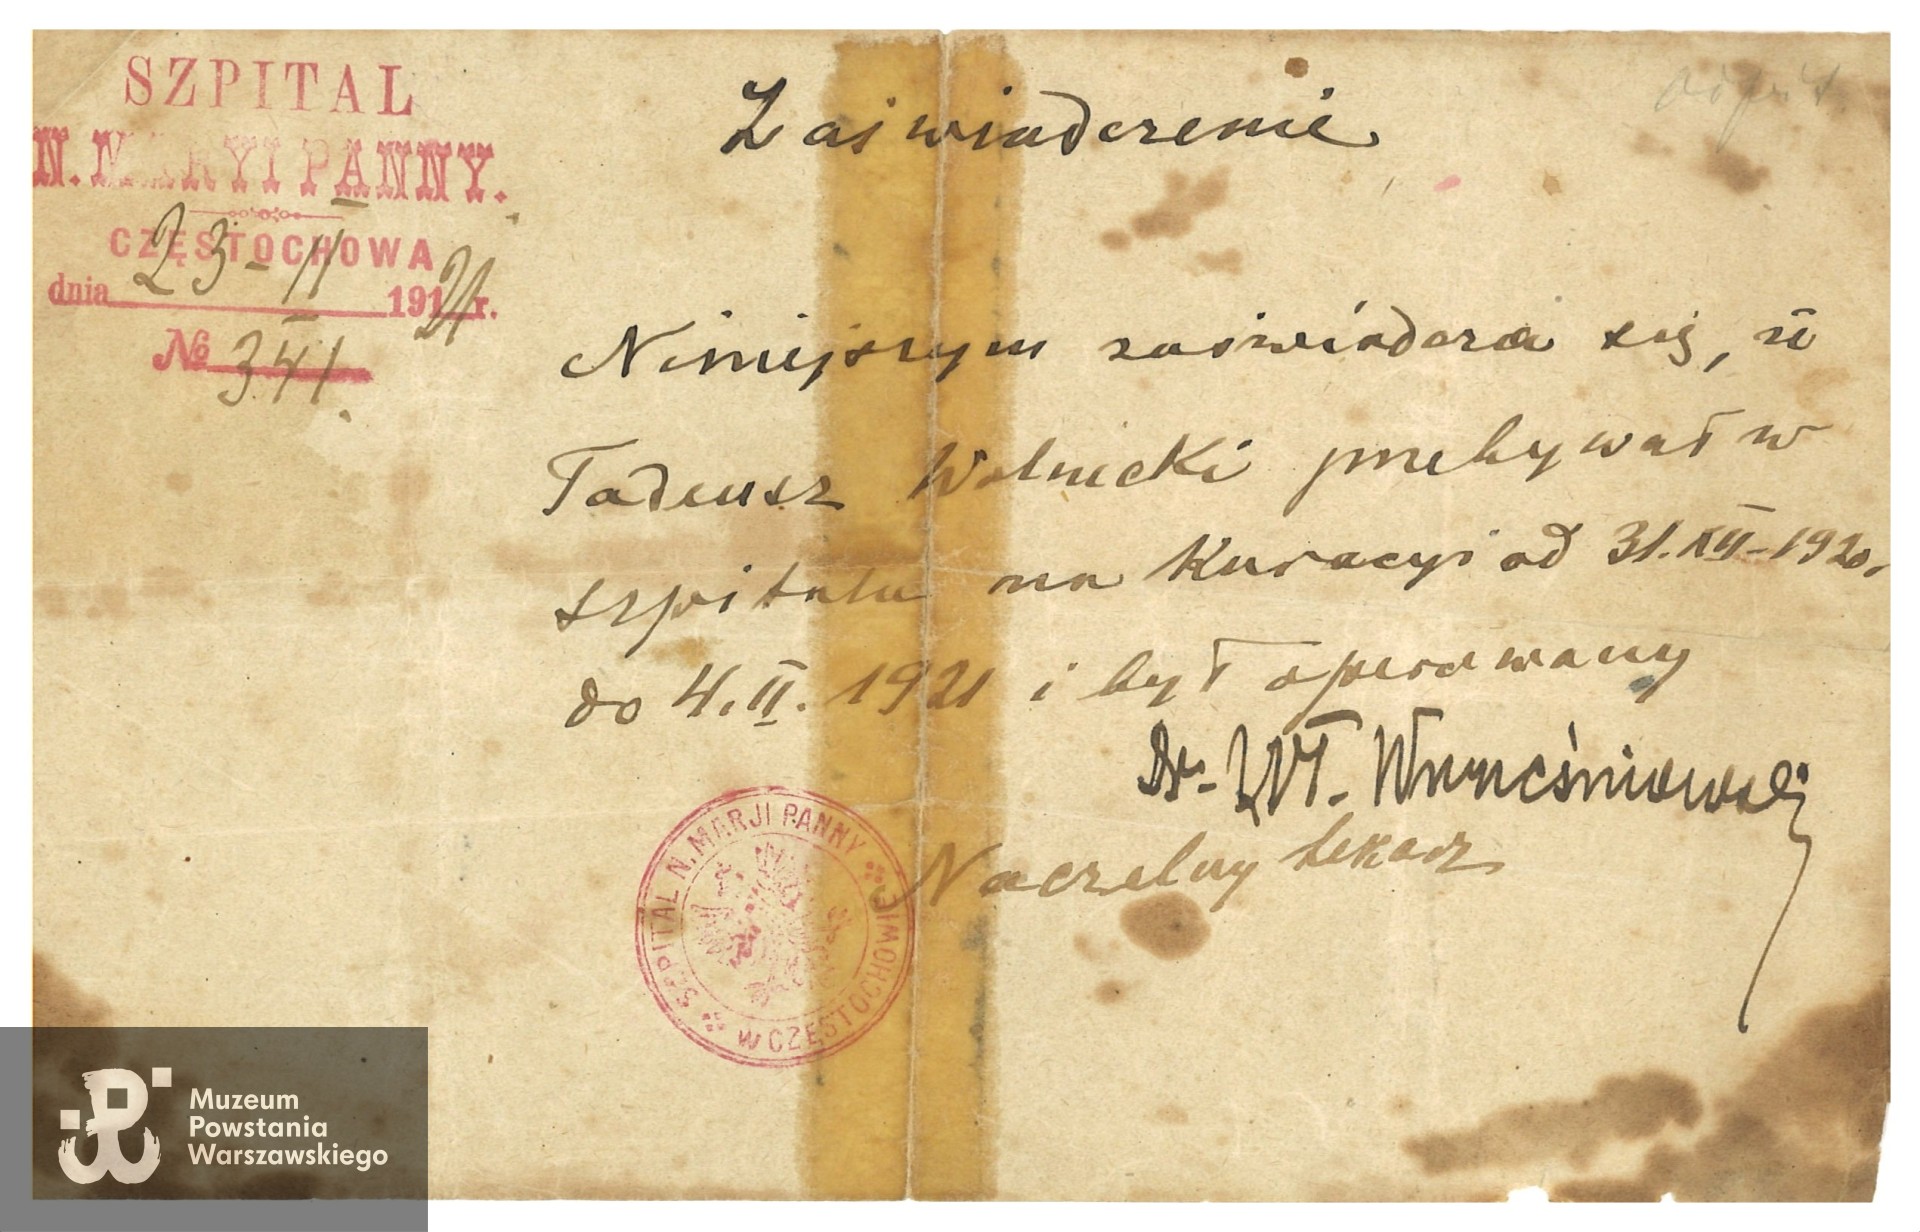 SZPITAL
N. MARYI PANNY.
CZĘSTOCHOWA
dnia 23-II 1921 r.
№ 341.
Zaświadczenie
Niniejszym zaświadcza się, iż
Tadeusz Wolnicki przebywał w
szpitalu na Kuracyi od 31.XII-1920.
do 4.II.1921 i był operowany
Dr. Wł. Wrześniowski
Naczelny Lekarz
SZPITAL N. MARJI PANNY
W CZĘSTOCHOWIE
Muzeum
Powstania
Warszawskiego